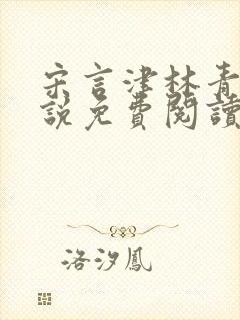 宋言津林青
說免費閱讀
洛汐鳳